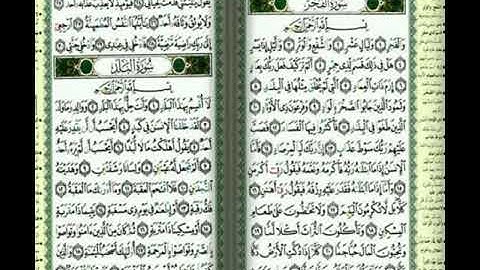 سُورَةُ الفَجْر
بِسْمِ اللَّهِ الرَّحْمَٰنِ الرَّحِيمِ
وَالْفَجْرِ ١ وَلَيَالٍ عَشْرٍ ٢ وَالشَّفْعِ وَالْوَتْرِ ٣ وَاللَّيْلِ إِذَا يَسْرِ
٤ هَلْ فِي ذَٰلِكَ قَسَمٌ لِّذِي حِجْرٍ ٥ أَلَمْ تَرَ كَيْفَ فَعَلَ رَبُّكَ بِعَادٍ
٦ إِرَمَ ذَاتِ الْعِمَادِ ٧ الَّتِي لَمْ يُخْلَقْ مِثْلُهَا فِي الْبِلَادِ ٨
وَثَمُودَ الَّذِينَ جَابُوا الصَّخْرَ بِالْوَادِ ٩ وَفِرْعَوْنَ ذِي الْأَوْتَادِ ١٠
الَّذِينَ طَغَوْا فِي الْبِلَادِ ١١ فَأَكْثَرُوا فِيهَا الْفَسَادَ ١٢ فَصَبَّ
عَلَيْهِمْ رَبُّكَ سَوْطَ عَذَابٍ ١٣ إِنَّ رَبَّكَ لَبِالْمِرْصَادِ ١٤ فَأَمَّا
الْإِنسَانُ إِذَا مَا ابْتَلَاهُ رَبُّهُ فَأَكْرَمَهُ وَنَعَّمَهُ فَيَقُولُ رَبِّي أَكْرَمَنِ
١٥ وَأَمَّا إِذَا مَا ابْتَلَاهُ فَقَدَرَ عَلَيْهِ رِزْقَهُ فَيَقُولُ رَبِّي أَهَانَنِ ١٦
كَلَّا بَل لَّا تُكْرِمُونَ الْيَتِيمَ ١٧ وَلَا تَحَاضُّونَ عَلَىٰ طَعَامِ
الْمِسْكِينِ ١٨ وَتَأْكُلُونَ التُّرَاثَ أَكْلًا لَّمًّا ١٩
وَتُحِبُّونَ الْمَالَ حُبًّا جَمًّا ٢٠ كَلَّا إِذَا دُكَّتِ الْأَرْضُ
وَلَا يُوثِقُ وَثَاقَهُ أَحَدٌ ٢٦ يَا أَيَّتُهَا النَّفْسُ الْمُطْمَئِنَّةُ ٢٧ ارْجِعِي
إِلَىٰ رَبِّكِ رَاضِيَةً مَّرْضِيَّةً ٢٨ فَادْخُلِي فِي عِبَادِي ٢٩ وَادْخُلِي جَنَّتِي ٣٠
سُورَةُ البَلَد
بِسْمِ اللَّهِ الرَّحْمَٰنِ الرَّحِيمِ
لَا أُقْسِمُ بِهَٰذَا الْبَلَدِ ١ وَأَنتَ حِلٌّ بِهَٰذَا الْبَلَدِ ٢ وَوَالِدٍ وَمَا وَلَدَ
٣ لَقَدْ خَلَقْنَا الْإِنسَانَ فِي كَبَدٍ ٤ أَيَحْسَبُ أَن لَّن يَقْدِرَ عَلَيْهِ
أَحَدٌ ٥ يَقُولُ أَهْلَكْتُ مَالًا لُّبَدًا ٦ أَيَحْسَبُ أَن لَّمْ يَرَهُ أَحَدٌ
٧ أَلَمْ نَجْعَل لَّهُ عَيْنَيْنِ ٨ وَلِسَانًا وَشَفَتَيْنِ ٩ وَهَدَيْنَاهُ
النَّجْدَيْنِ ١٠ فَلَا اقْتَحَمَ الْعَقَبَةَ ١١ وَمَا أَدْرَاكَ مَا الْعَقَبَةُ ١٢
فَكُّ رَقَبَةٍ ١٣ أَوْ إِطْعَامٌ فِي يَوْمٍ ذِي مَسْغَبَةٍ ١٤ يَتِيمًا ذَا مَقْرَبَةٍ
١٥ أَوْ مِسْكِينًا ذَا مَتْرَبَةٍ ١٦ ثُمَّ كَانَ مِنَ الَّذِينَ آمَنُوا وَتَوَاصَوْا
بِالصَّبْرِ وَتَوَاصَوْا بِالْمَرْحَمَةِ ١٧ أُولَٰئِكَ أَصْحَابُ الْمَيْمَنَةِ ١٨